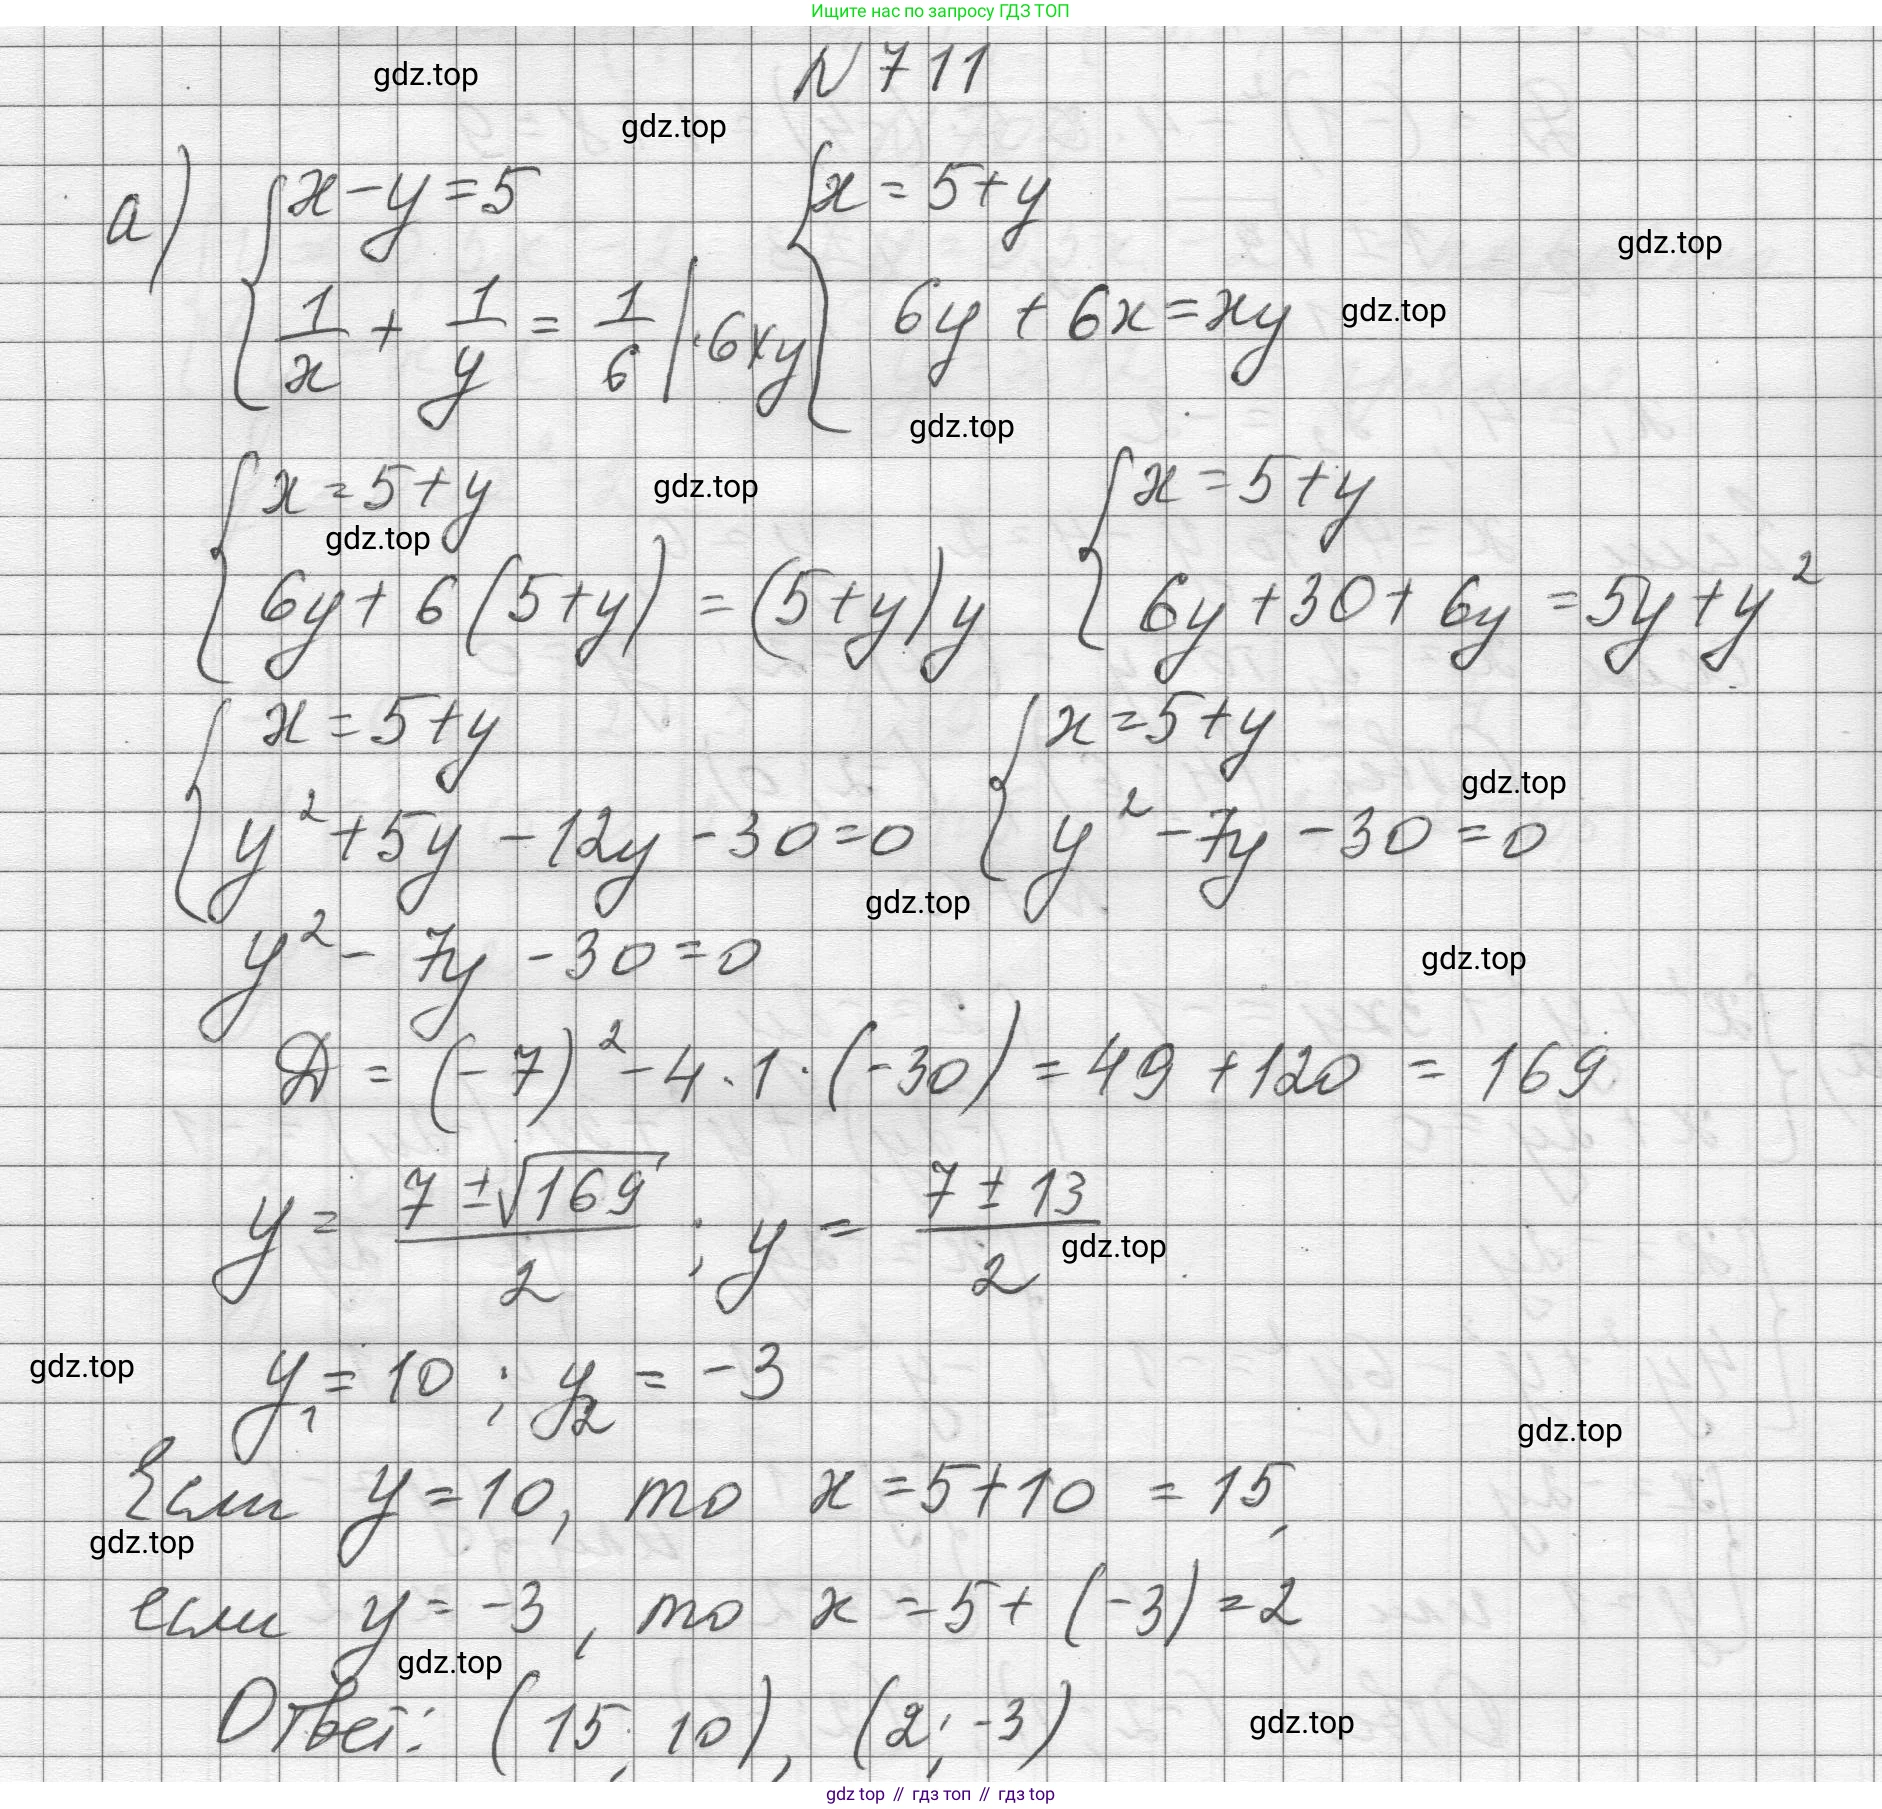 Ищите нас по запросу ГДЗ ТОП
N 711
gdz.top
gdz.top
а) { x - y = 5 { x = 5 + y
gdz.top
1/x + 1/y = 1/6 | · 6xy 6y + 6x = xy gdz.top
gdz.top
{ x = 5 + y gdz.top { x = 5 + y
gdz.top
6y + 6(5 + y) = (5 + y)y 6y + 30 + 6y = 5y + y²
{ x = 5 + y { x = 5 + y
gdz.top
y² + 5y - 12y - 30 = 0 y² - 7y - 30 = 0
gdz.top
y² - 7y - 30 = 0 gdz.top
D = (-7)² - 4 · 1 · (-30) = 49 + 120 = 169
y = (7 ± √169)/2 ; y = (7 ± 13)/2
gdz.top
gdz.top y₁ = 10 ; y₂ = -3
gdz.top
Если y = 10, то x = 5 + 10 = 15,
gdz.top
если y = -3, то x = 5 + (-3) = 2
gdz.top
Ответ: (15; 10), (2; -3) gdz.top
gdz top // гдз топ // гдз top